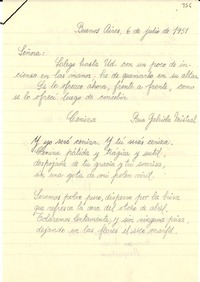 756
Buenos Aires, 6 de julio de 1951
Señora:
Llego hasta Ud. con un poco de in-
cienso en las manos, he de quemarlo en su altar.
Se lo ofrezco ahora, frente a frente, como
se lo ofrecí luego de
Ceniza Para Gabriela Mistral
Y yo seré ceniza. Y tú serás ceniza.
Ceniza pálida y trágica y sutil,
despojada de tu gracia y tu sonrisa,
sin una gota de mi polen viril.
Seremos polvo puro, disperso por la brisa
que refresca la cara del chico de abril.
lentamente, y sin ninguna prisa,
dejando en las flores el